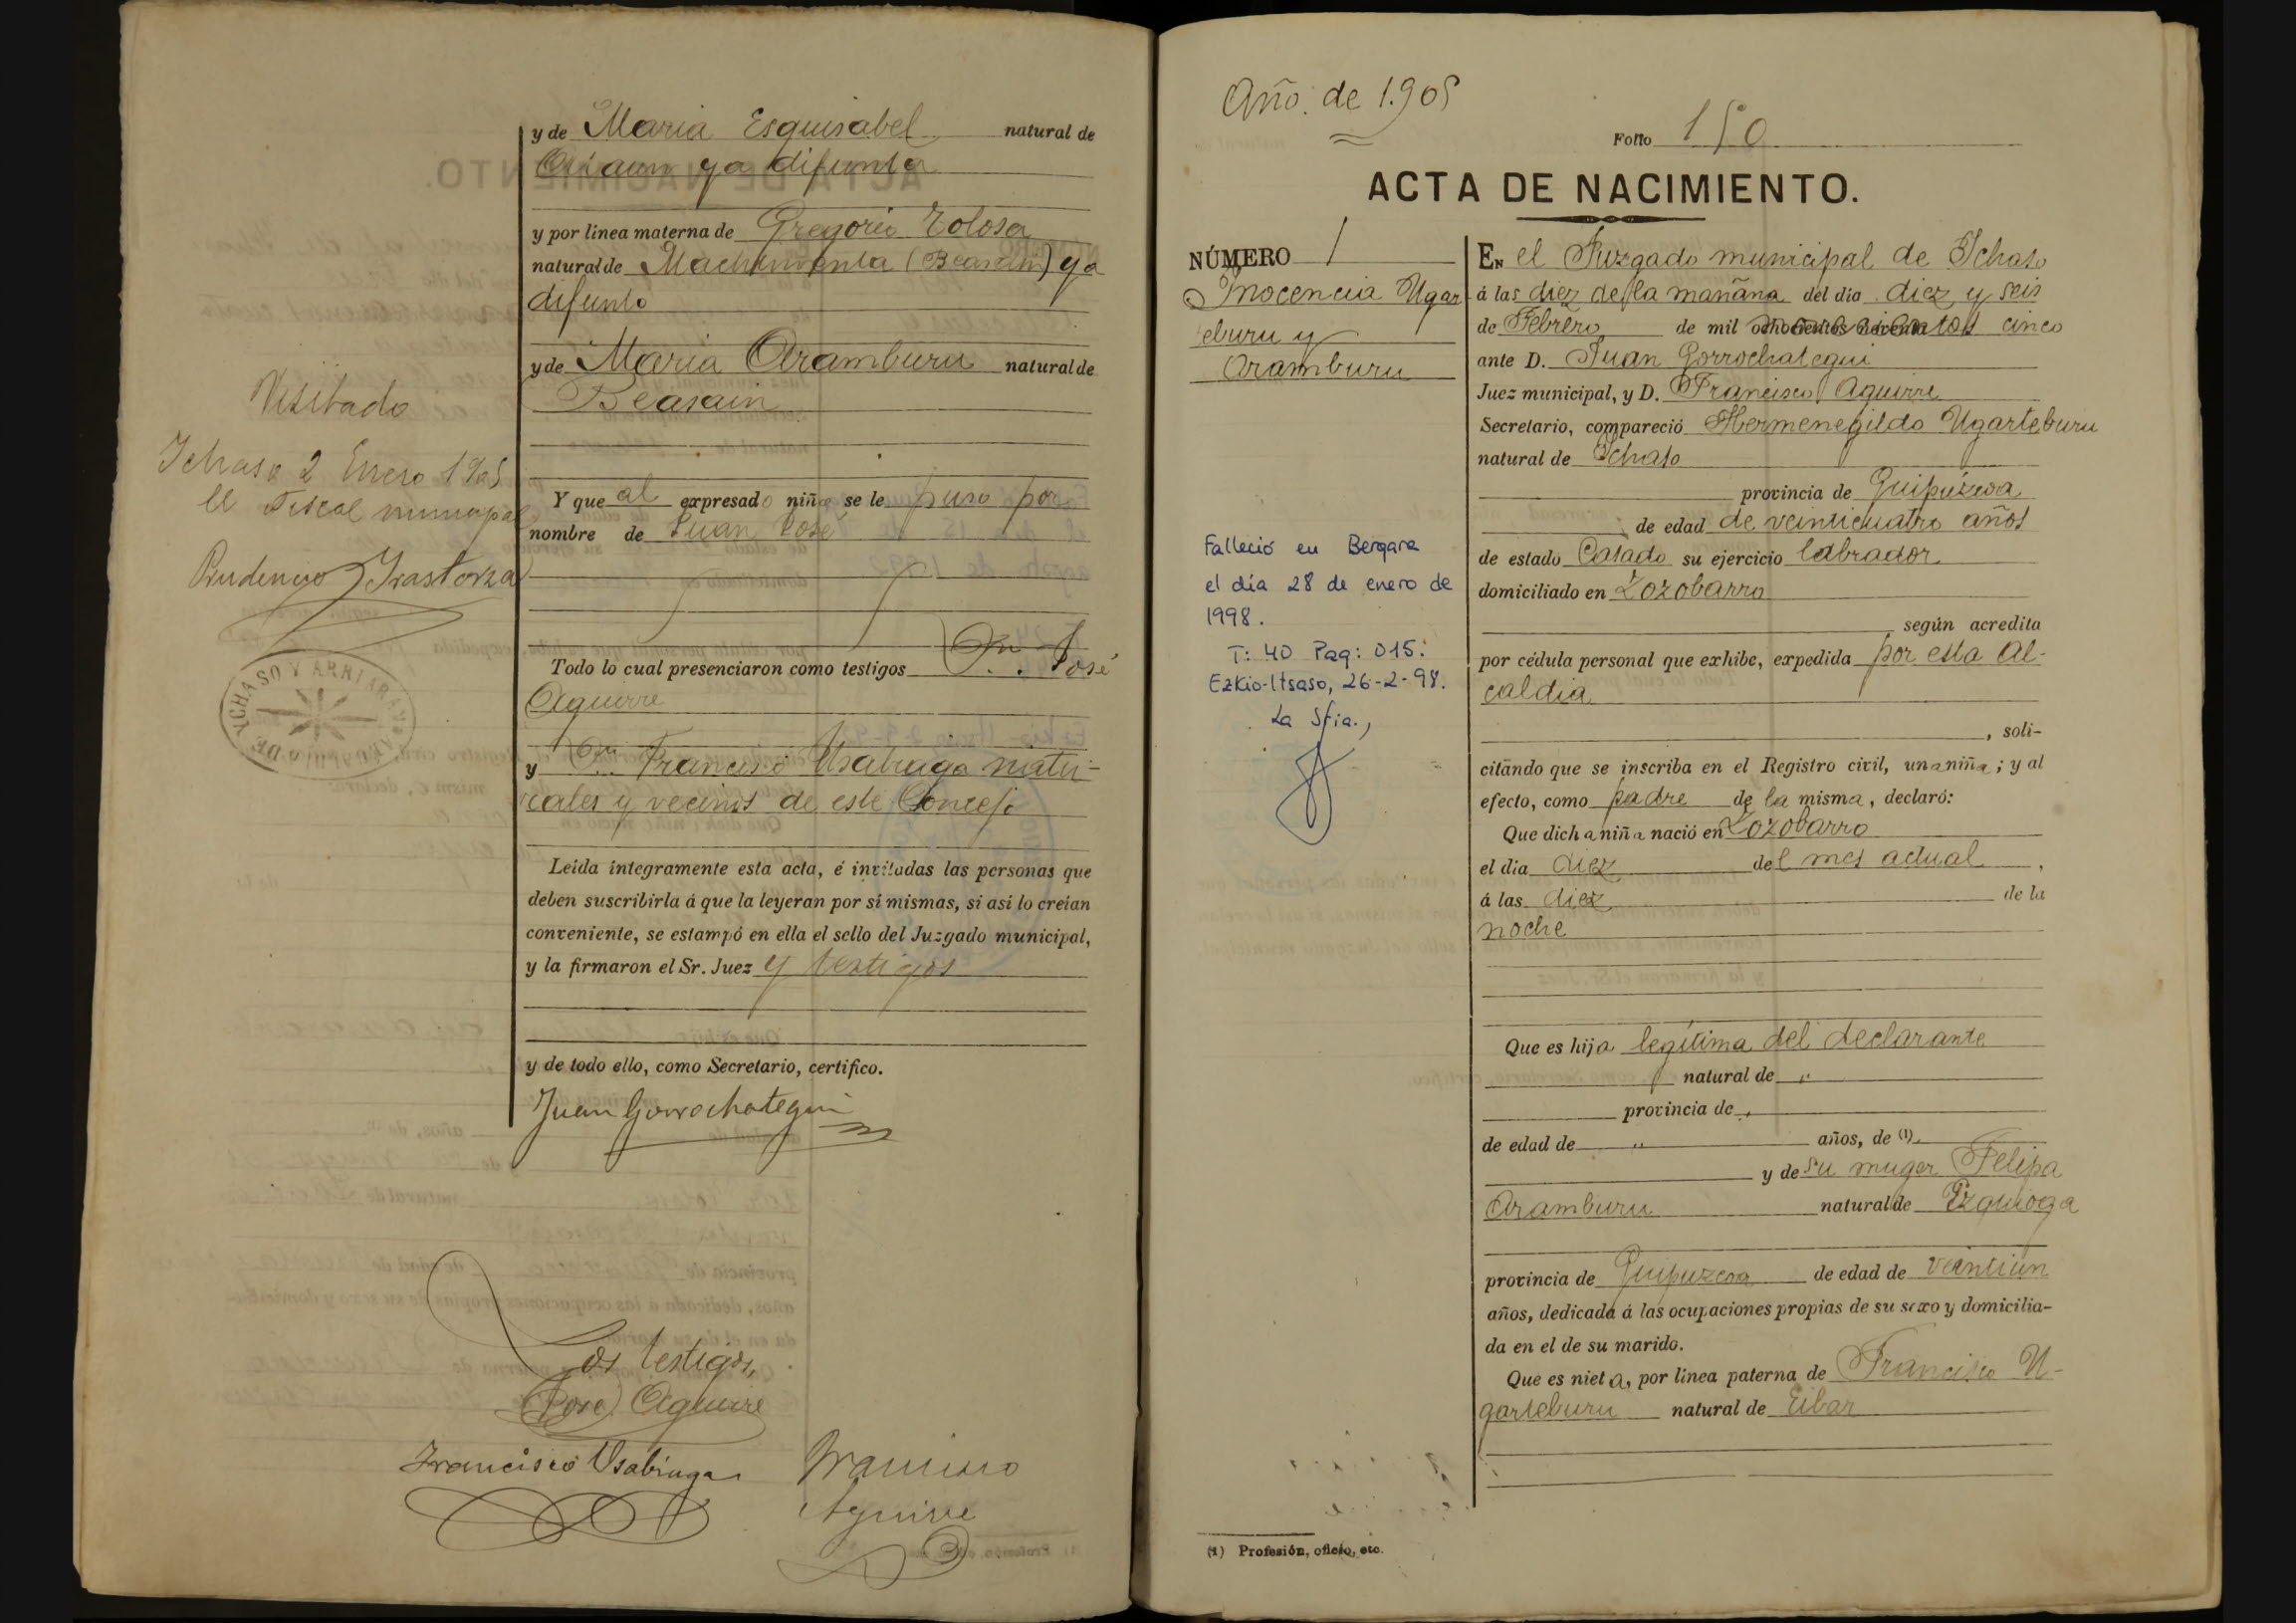 y de Maria Esquisabel natural de
Ataun ya difunta
y por línea materna de Gregorio Tolosa
natural de Machinventa (Beasain) ya
difunto
y de Maria Aramburu natural de
Beasain
Y que al expresado niño se le puso por
nombre de Juan José
Todo lo cual presenciaron como testigos Dn. José
Aguirre
y Dn. Francisco Usabiaga natu-
rales y vecinos de este Concejo
Leída íntegramente esta acta, é invitadas las personas que
deben suscribirla á que la leyeran por sí mismas, si así lo creían
conveniente, se estampó en ella el sello del Juzgado municipal,
y la firmaron el Sr. Juez y testigos
y de todo ello, como Secretario, certifico.
Juan Gorrochategui
Los testigos,
José Aguirre
Francisco Usabiaga
Francisco
Aguirre
Visitado
Ichaso 2 Enero 1905
El Fiscal municipal
Prudencio Irastorza
YCHASO Y ARRIARAN
Año de 1.905
Folio 150
ACTA DE NACIMIENTO.
NÚMERO 1
Inocencia Ugar
teburu y
Aramburu
Falleció en Bergara
el día 28 de enero de
1998.
T: 40 Pag: 015.
Ezkio-Itsaso, 26-2-98.
La Sria.,
En el Juzgado municipal de Ichaso
á las diez de la mañana del día diez y seis
de Febrero de mil novecientos cinco
ante D. Juan Gorrochategui
Juez municipal, y D. Francisco Aguirre
Secretario, compareció Hermenegildo Ugarteburu
natural de Ichaso
provincia de Guipúzcoa
de edad de veinticuatro años
de estado Casado su ejercicio labrador
domiciliado en Zozobarro
según acredita
por cédula personal que exhibe, expedida por esta Al-
caldia
, soli-
citando que se inscriba en el Registro civil, una niña; y al
efecto, como padre de la misma, declaró:
Que dicha niña nació en Zozobarro
el día diez del mes actual,
á las diez de la
noche
Que es hija legítima del declarante
natural de "
provincia de "
de edad de " años, de (1)
y de su muger Felipa
Aramburu natural de Ezquioga
provincia de Guipuzcoa de edad de veintiún
años, dedicada á las ocupaciones propias de su sexo y domicilia-
da en el de su marido.
Que es nieta, por línea paterna de Francisco U-
garteburu natural de Eibar
(1) Profesión, oficio, etc.